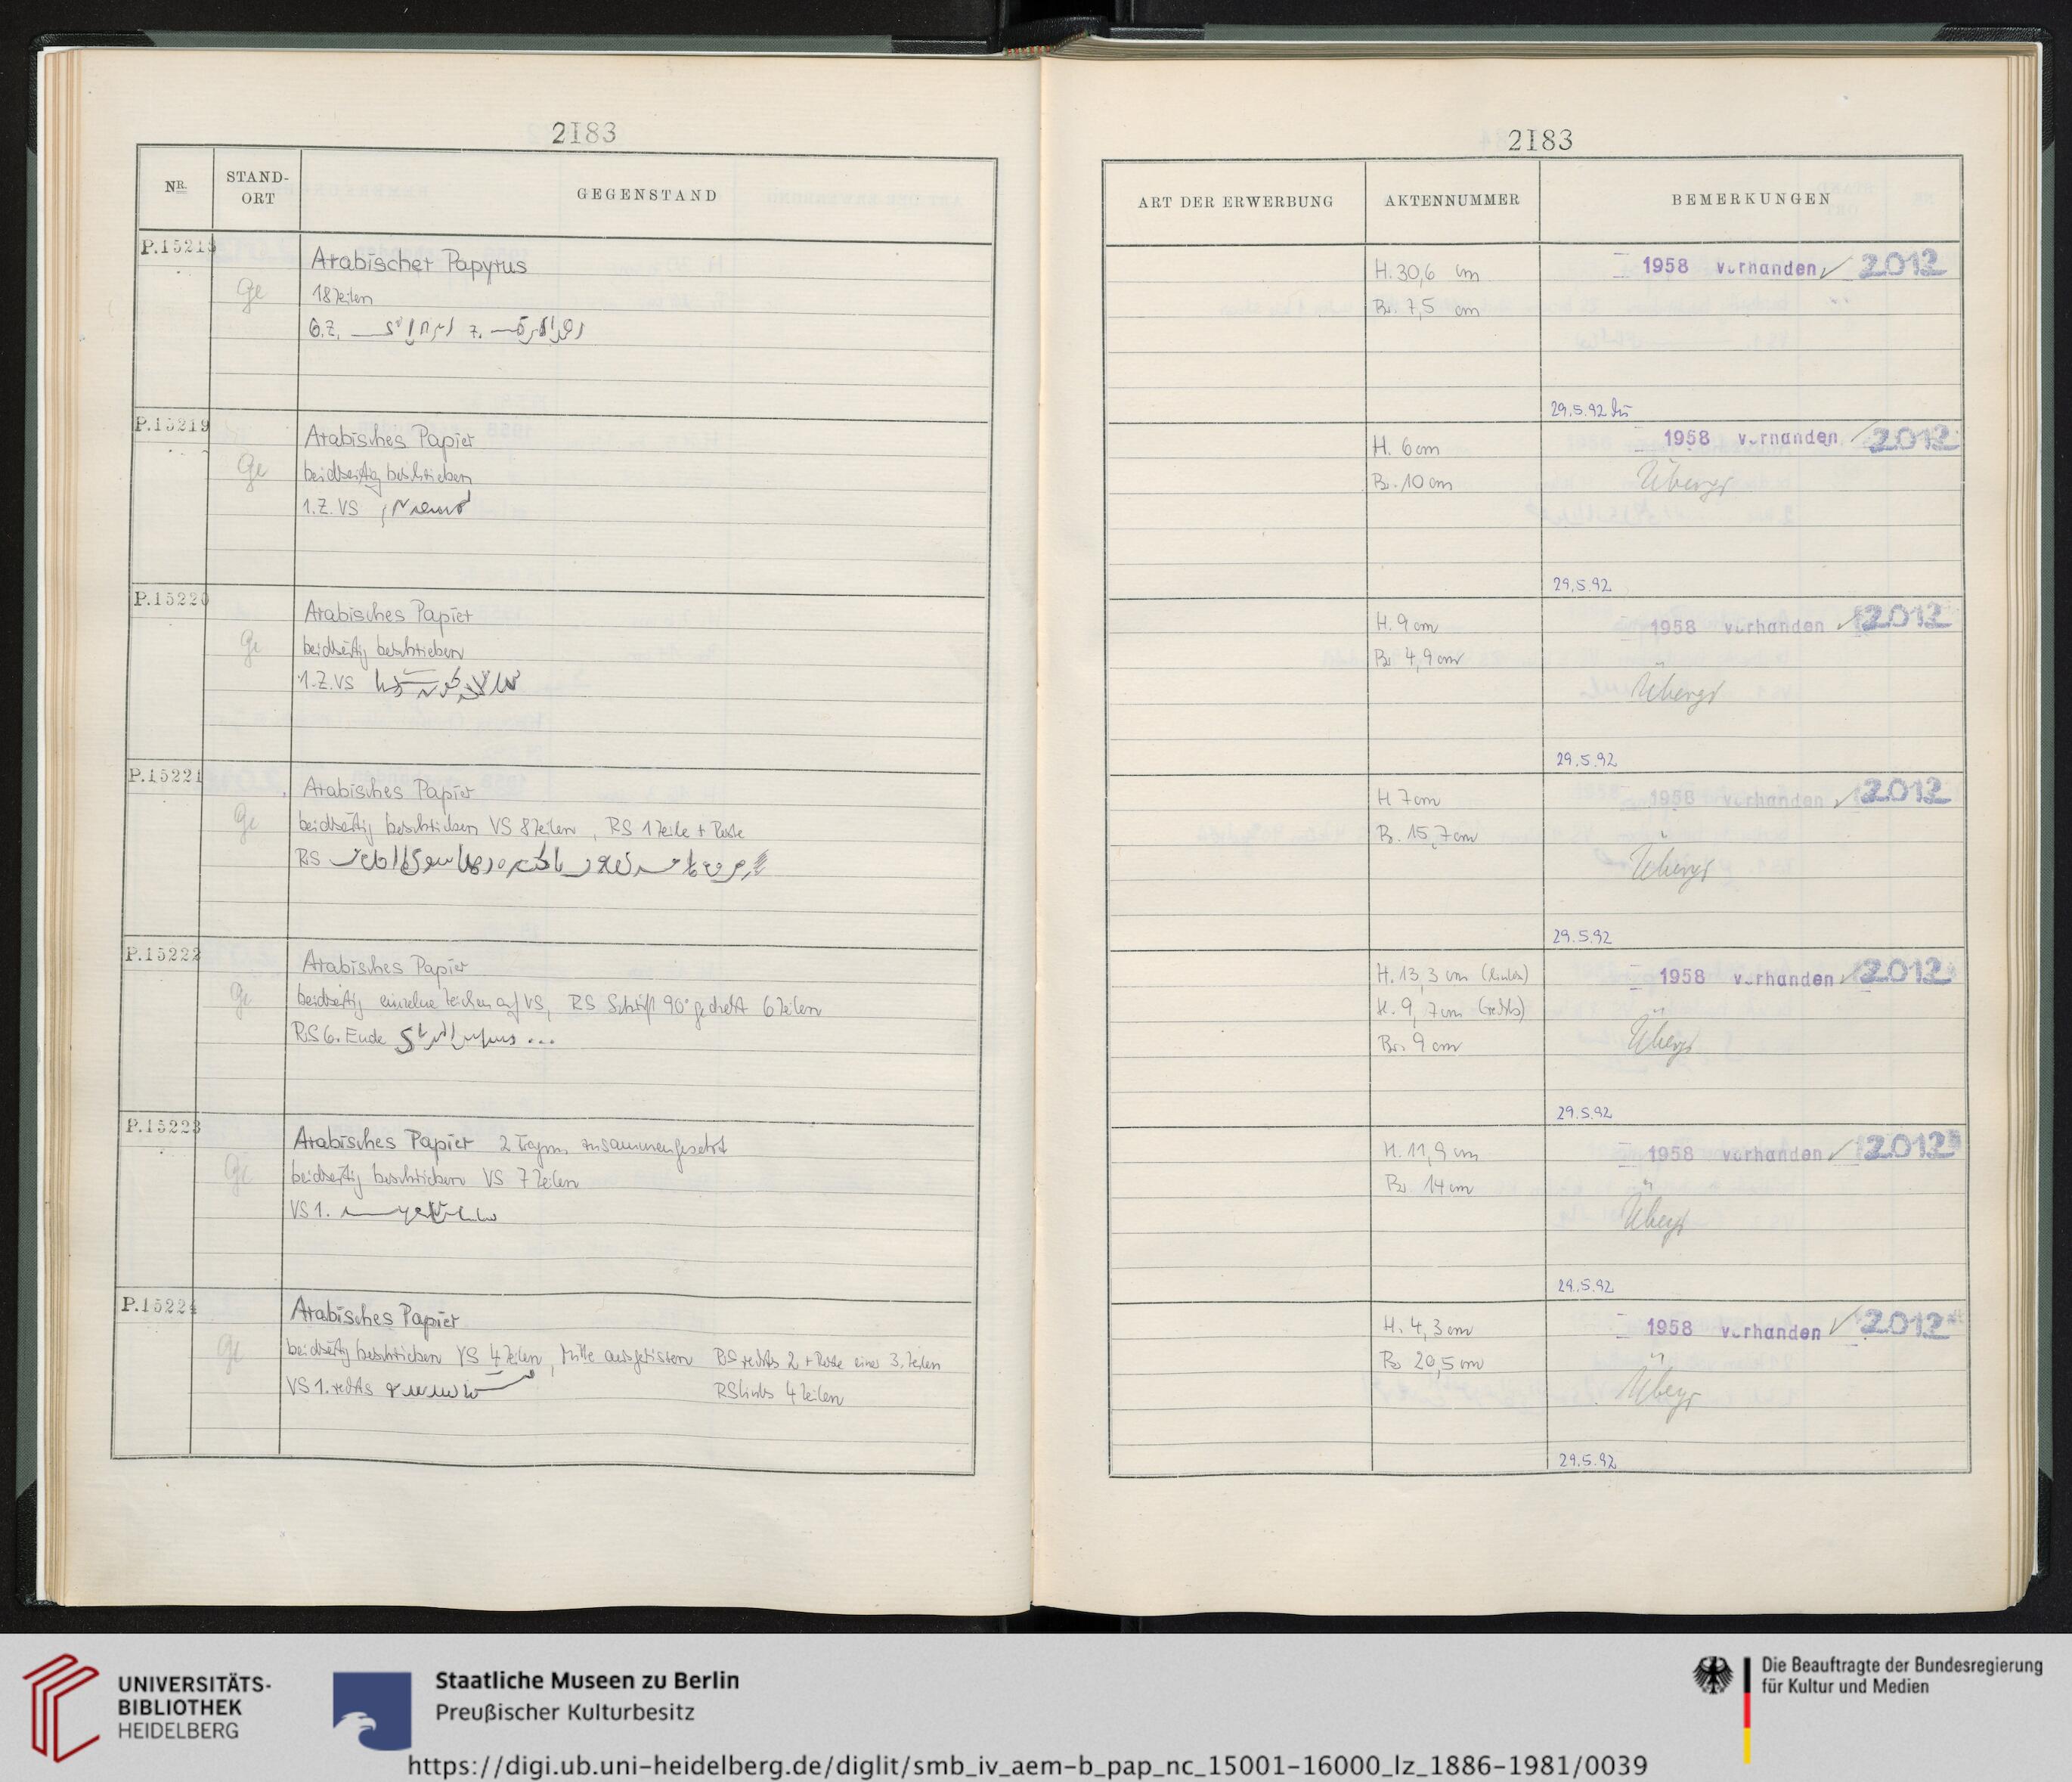 2183
NR.
STAND-
ORT
GEGENSTAND
P.15218
Arabischer Papyrus
Ge
18 Zeilen
6.Z.
7.
P.15219
Arabisches Papier
Ge
beidseitig beschrieben
1.Z. VS
P.15220
Arabisches Papier
Ge
beidseitig beschrieben
1.Z. VS
P.15221
Arabisches Papier
Ge
beidseitig beschrieben VS 8 Zeilen, RS 1 Zeile + Reste
RS
P.15222
Arabisches Papier
Ge
beidseitig einzelne Zeichen auf VS, RS Schrift 90° gedreht 6 Zeilen
RS 6. Ende ...
P.15223
Arabisches Papier 2 Fragm. zusammengesetzt
Ge
beidseitig beschrieben VS 7 Zeilen
VS 1.
P.15224
Arabisches Papier
Ge
beidseitig beschrieben VS 4 Zeilen, Mitte ausgerissen RS rechts 2 + Reste einer 3. Zeilen
VS 1. rechts
RS links 4 Zeilen
2183
ART DER ERWERBUNG
AKTENNUMMER
BEMERKUNGEN
H. 30,6 cm
1958 vorhanden ✓ 2012
Br. 7,5 cm
29.5.92
H. 6 cm
1958 vorhanden ✓ 2012
Br. 10 cm
29.5.92
H. 9 cm
1958 vorhanden ✓ 2012
Br. 4,9 cm
29.5.92
H 7 cm
1958 vorhanden ✓ 2012
B. 15,7 cm
29.5.92
H. 13,3 cm (links)
1958 vorhanden ✓ 2012
H. 9,7 cm (rechts)
Br. 9 cm
29.5.92
H. 11,9 cm
1958 vorhanden ✓ 2012
Br. 14 cm
29.5.92
H. 4,3 cm
1958 vorhanden ✓ 2012
Br 20,5 cm
29.5.92
UNIVERSITÄTS-
BIBLIOTHEK
HEIDELBERG
Staatliche Museen zu Berlin
Preußischer Kulturbesitz
Die Beauftragte der Bundesregierung
für Kultur und Medien
https://digi.ub.uni-heidelberg.de/diglit/smb_iv_aem-b_pap_nc_15001-16000_lz_1886-1981/0039